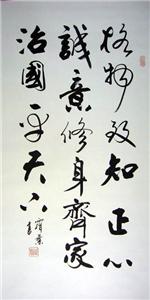 格物致知正心
誠意修身齊家
治國平天下